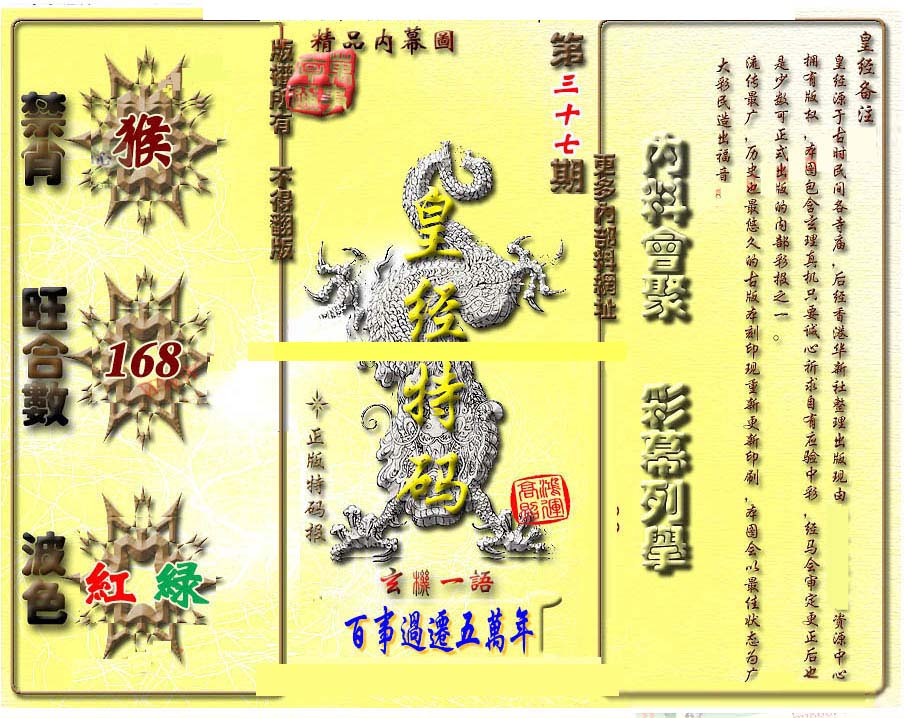 精品内幕圖
版權所有 不得翻版
第三十七期
更多内部料網址
禁肖
猴
旺合數
168
波色
紅 綠
皇经特码
正版特码报
鴻運高照
玄機一語
百事過遷五萬年
内料會聚
彩幕列舉
皇经备注
皇经源于古时民间各寺庙，后经香港华新社整理出版现由 资源中心
拥有版权，本图包含玄理真机只要诚心祈求自有应验中彩，经马会审定更正后也
是少数可正式出版的内部彩报之一。
流传最广，历史也最悠久的古版本刻印现重新更新印刷，本图会以最佳状态为广
大彩民造出福音